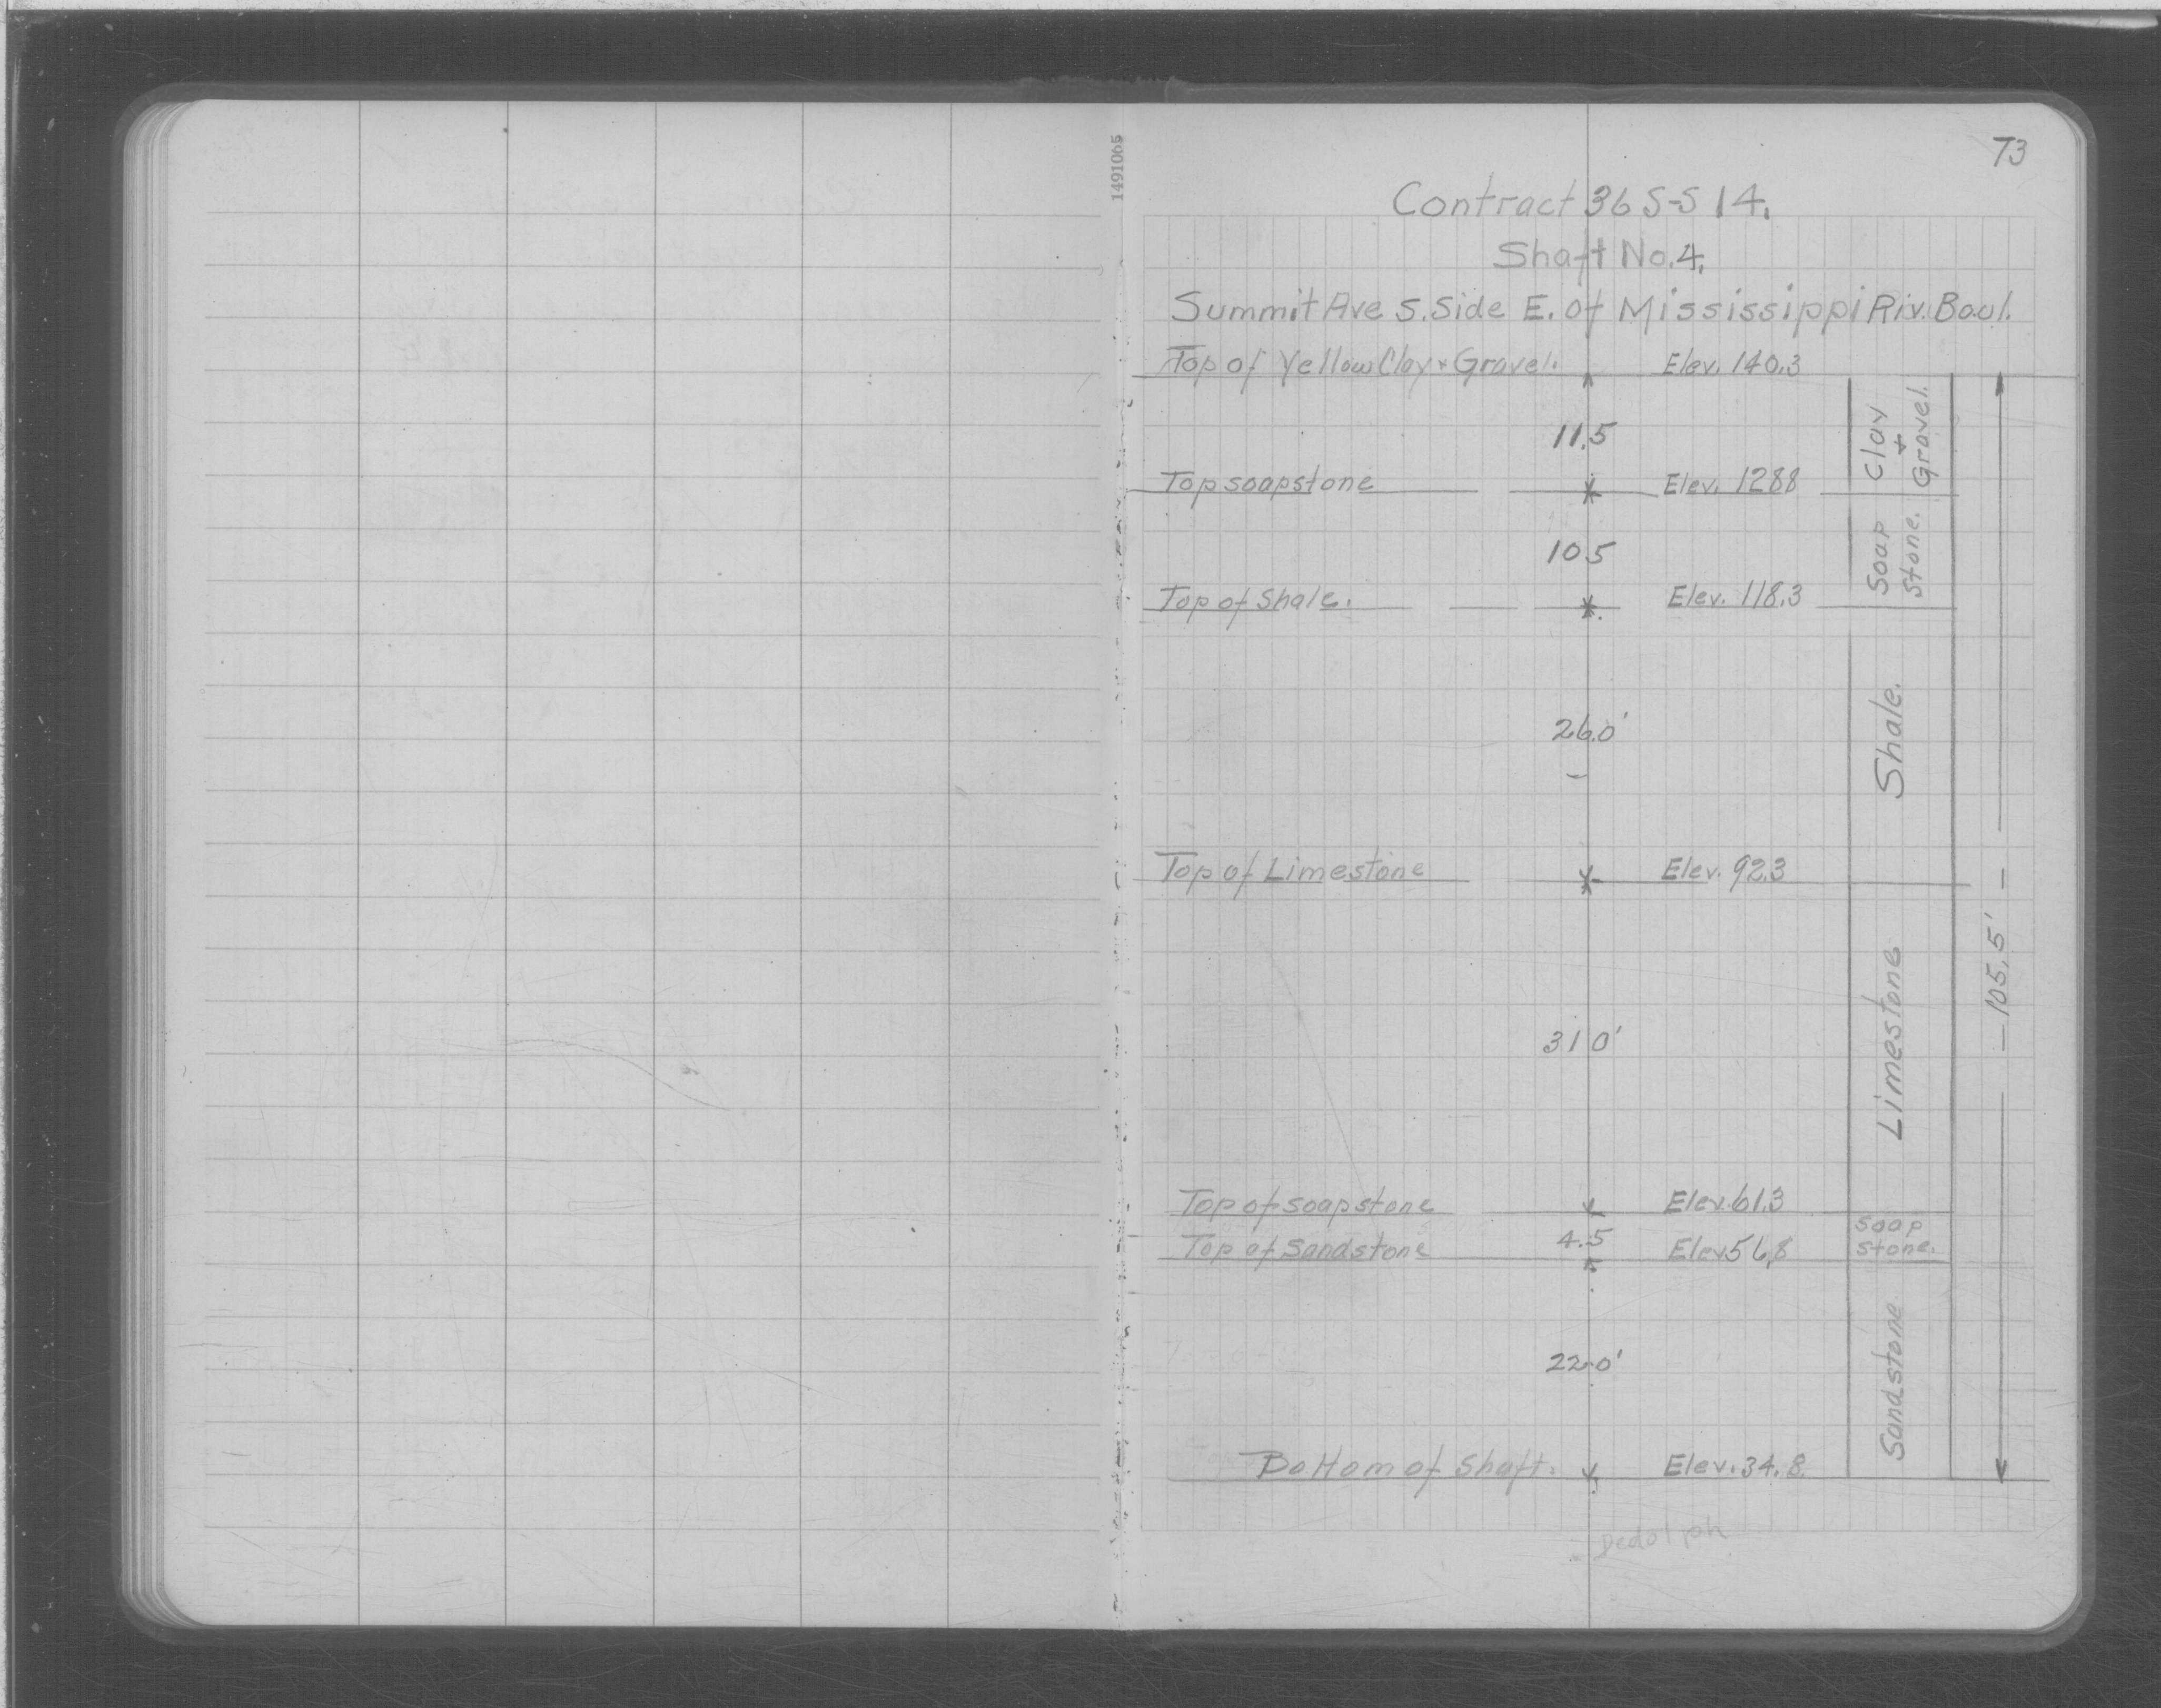 1491065
73
Contract 36 S-S 14.
Shaft No.4.
Summit Ave S. Side E. of Mississippi Riv. Boul.
Top of Yellow Clay + Gravel. Elev. 140.3
11.5
Clay + Gravel.
Top soapstone Elev. 1288
10.5
Soap Stone.
Top of Shale. Elev. 118.3
26.0'
Shale.
Top of Limestone Elev. 92.3
105.5'
31 0'
Limestone
Top of soapstone Elev. 61.3
4.5
Soap Stone.
Top of Sandstone Elev 56.8
22.0'
Sandstone
Bottom of Shaft. Elev. 34.8
Dedolph